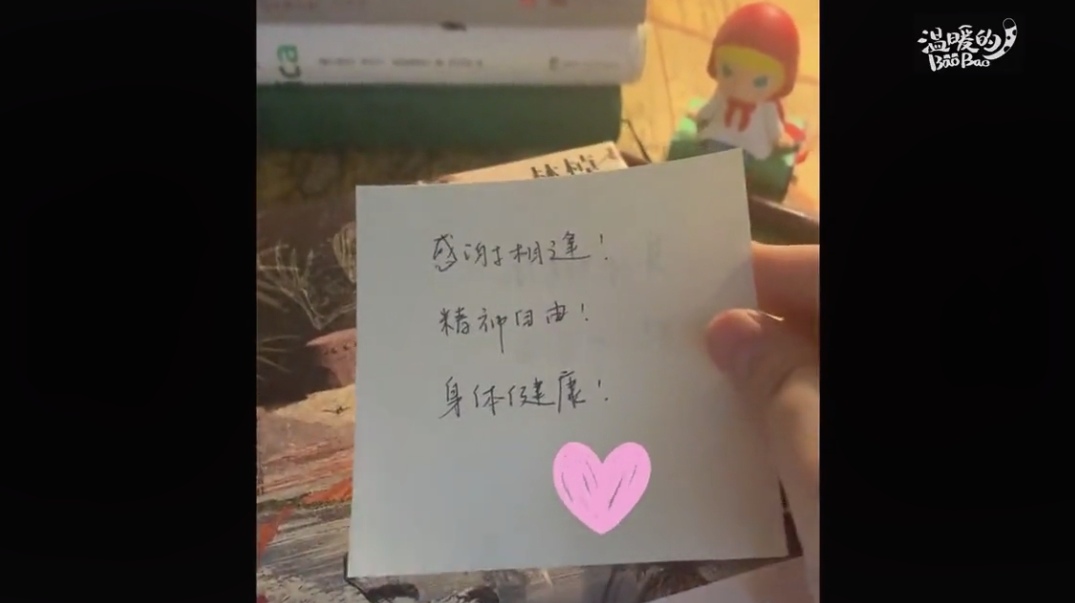 温暖的
BaoBao
感谢相逢！
精神自由！
身体健康！